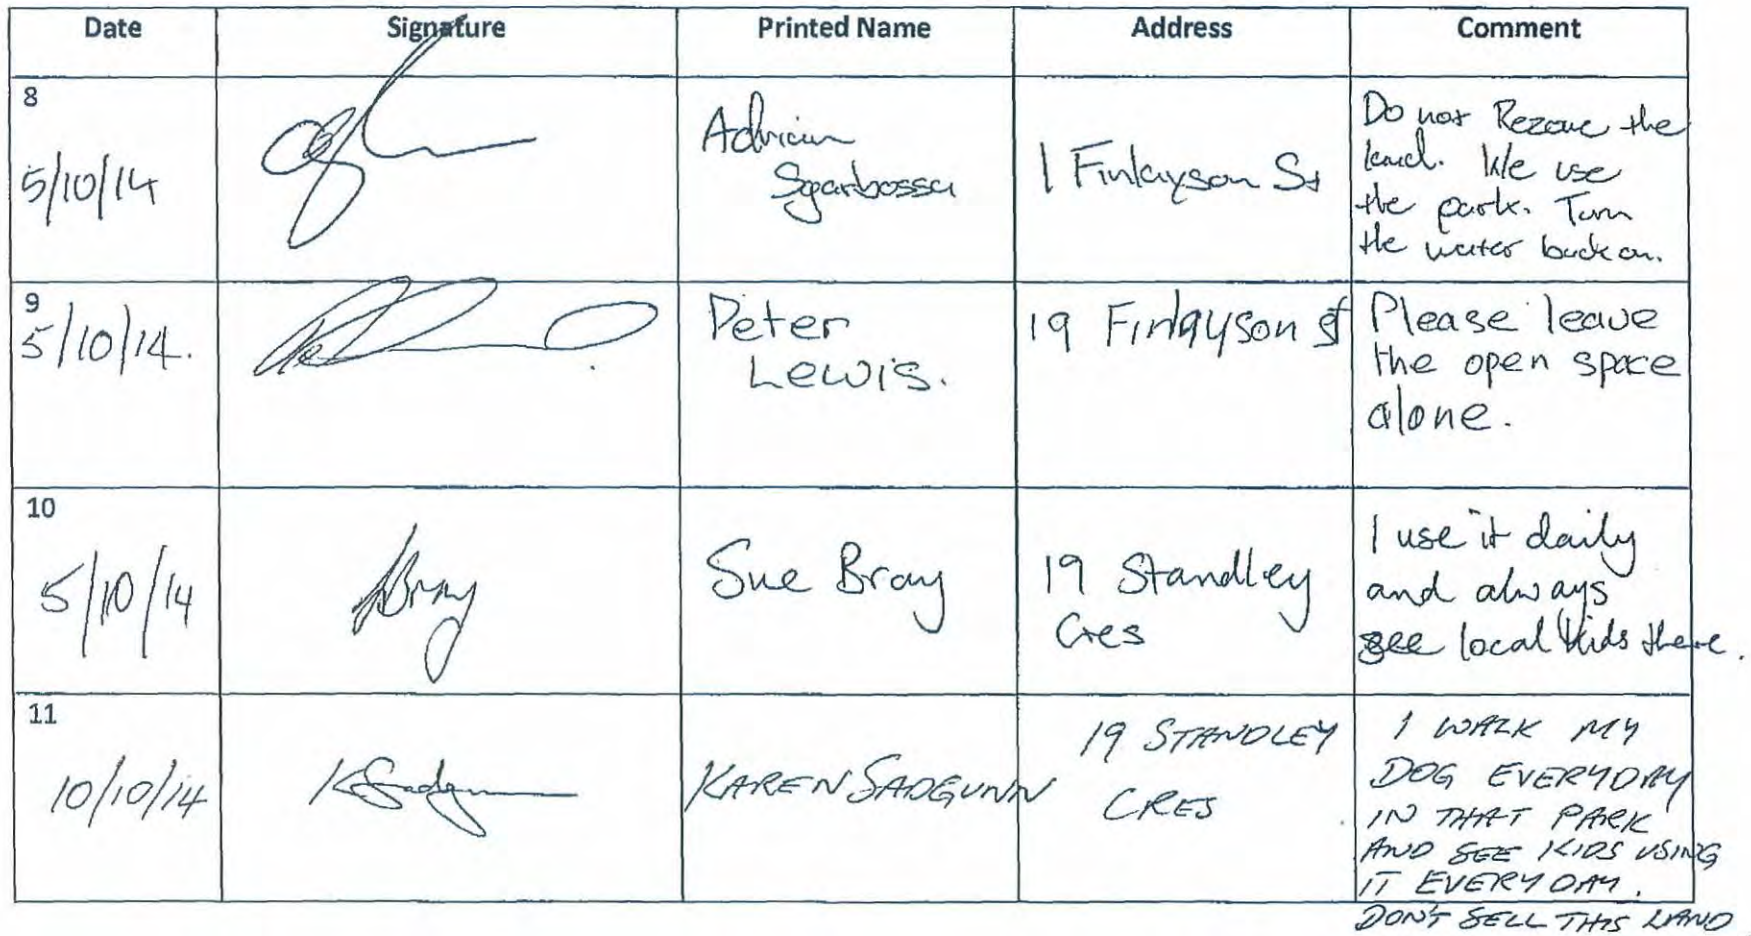 Date Signature Printed Name Address Comment
8
5/10/14
Adrian
Sgarbossa
1 Finlayson St
Do not Rezone the
land. We use
the park. Turn
the water back on.
9
5/10/14.
Peter
Lewis.
19 Finlayson st
Please leave
the open space
alone.
10
5/10/14
Bray
Sue Bray
19 Standley
Cres
I use it daily
and always
see local kids there.
11
10/10/14
KSadgunn
KAREN SADGUNN
19 STANDLEY
CRES
I WALK MY
DOG EVERYDAY
IN THAT PARK
AND SEE KIDS USING
IT EVERYDAY.
DON'T SELL THIS LAND